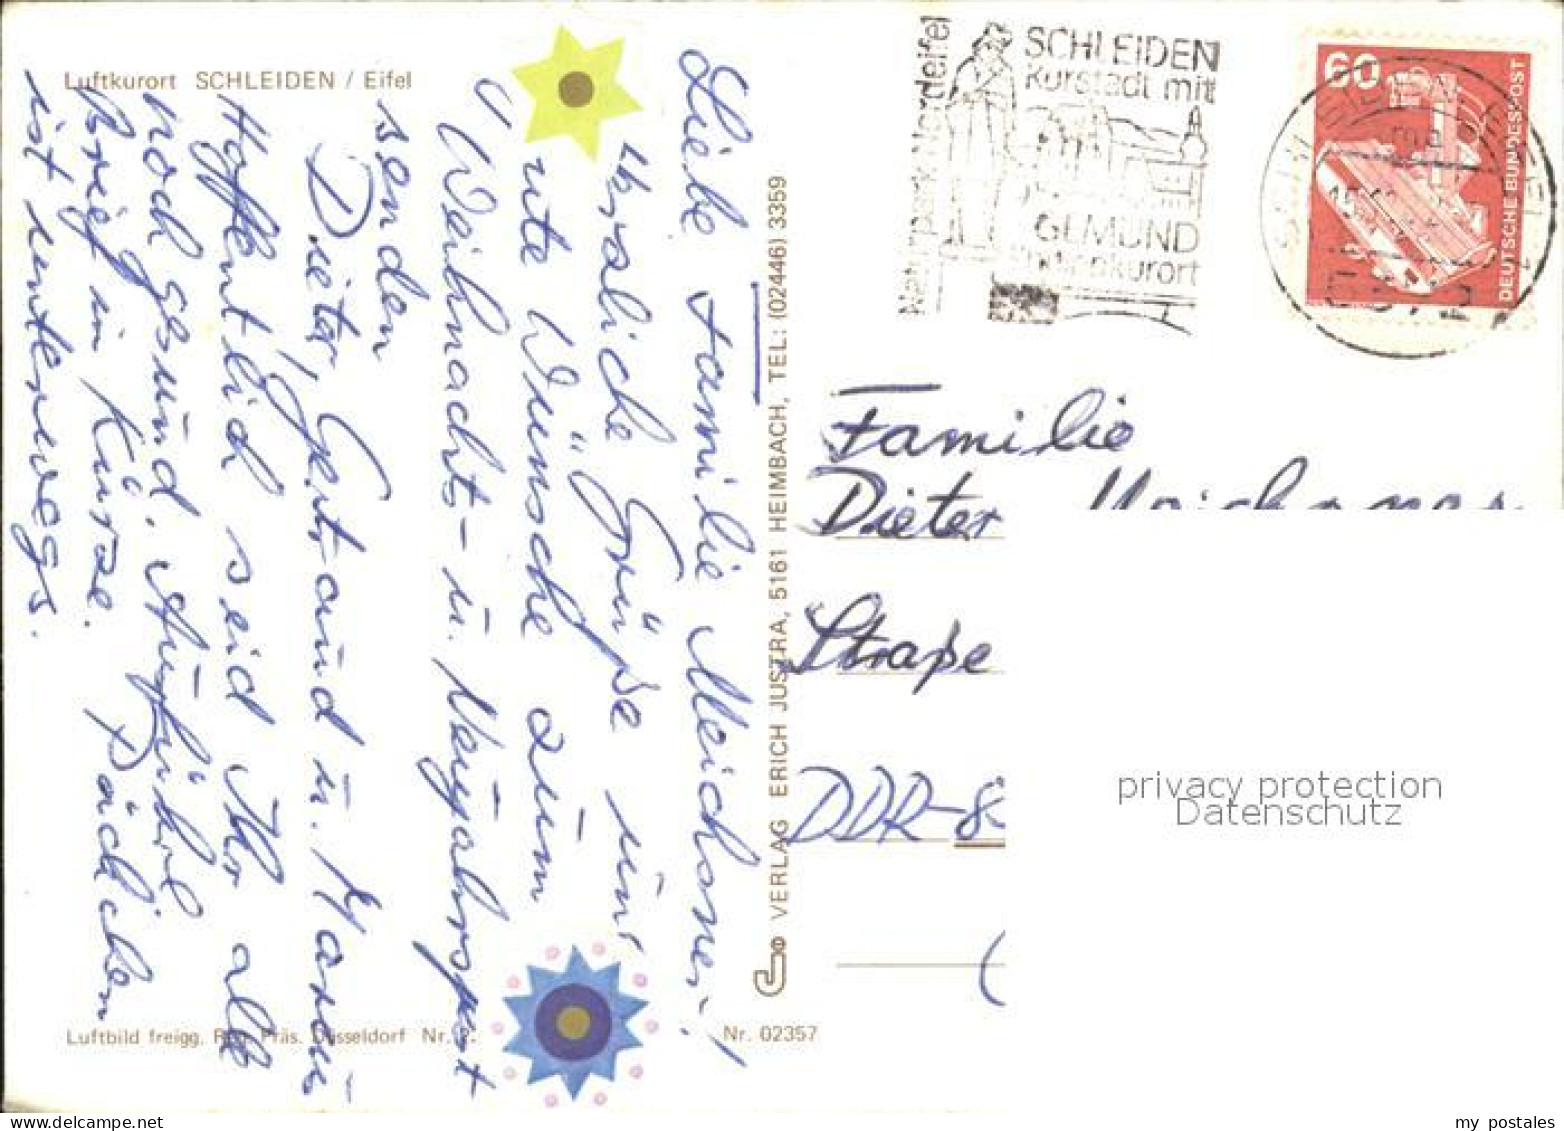 Luftkurort SCHLEIDEN / Eifel
Liebe Familie Meichsner!
Herzliche Grüße und
gute Wünsche zum
Weihnachts- u. Neujahrspost
senden
Dieter, Gertraud u.
Hoffentlich seid Ihr alle
noch gesund. Ausführl.
Brief in Kürze. Päckchen
ist unterwegs.
Luftbild freigg. Reg. Präs. Düsseldorf Nr.
Nr. 02357
VERLAG ERICH JUSTRA, 5161 HEIMBACH, TEL: (02446) 3359
Naturpark Nordeifel
SCHLEIDEN
Kurstadt mit
GEMÜND
Kneippkurort
60
DEUTSCHE BUNDESPOST
Familie
Dieter
Straße
DDR-8
privacy protection
Datenschutz
my postales